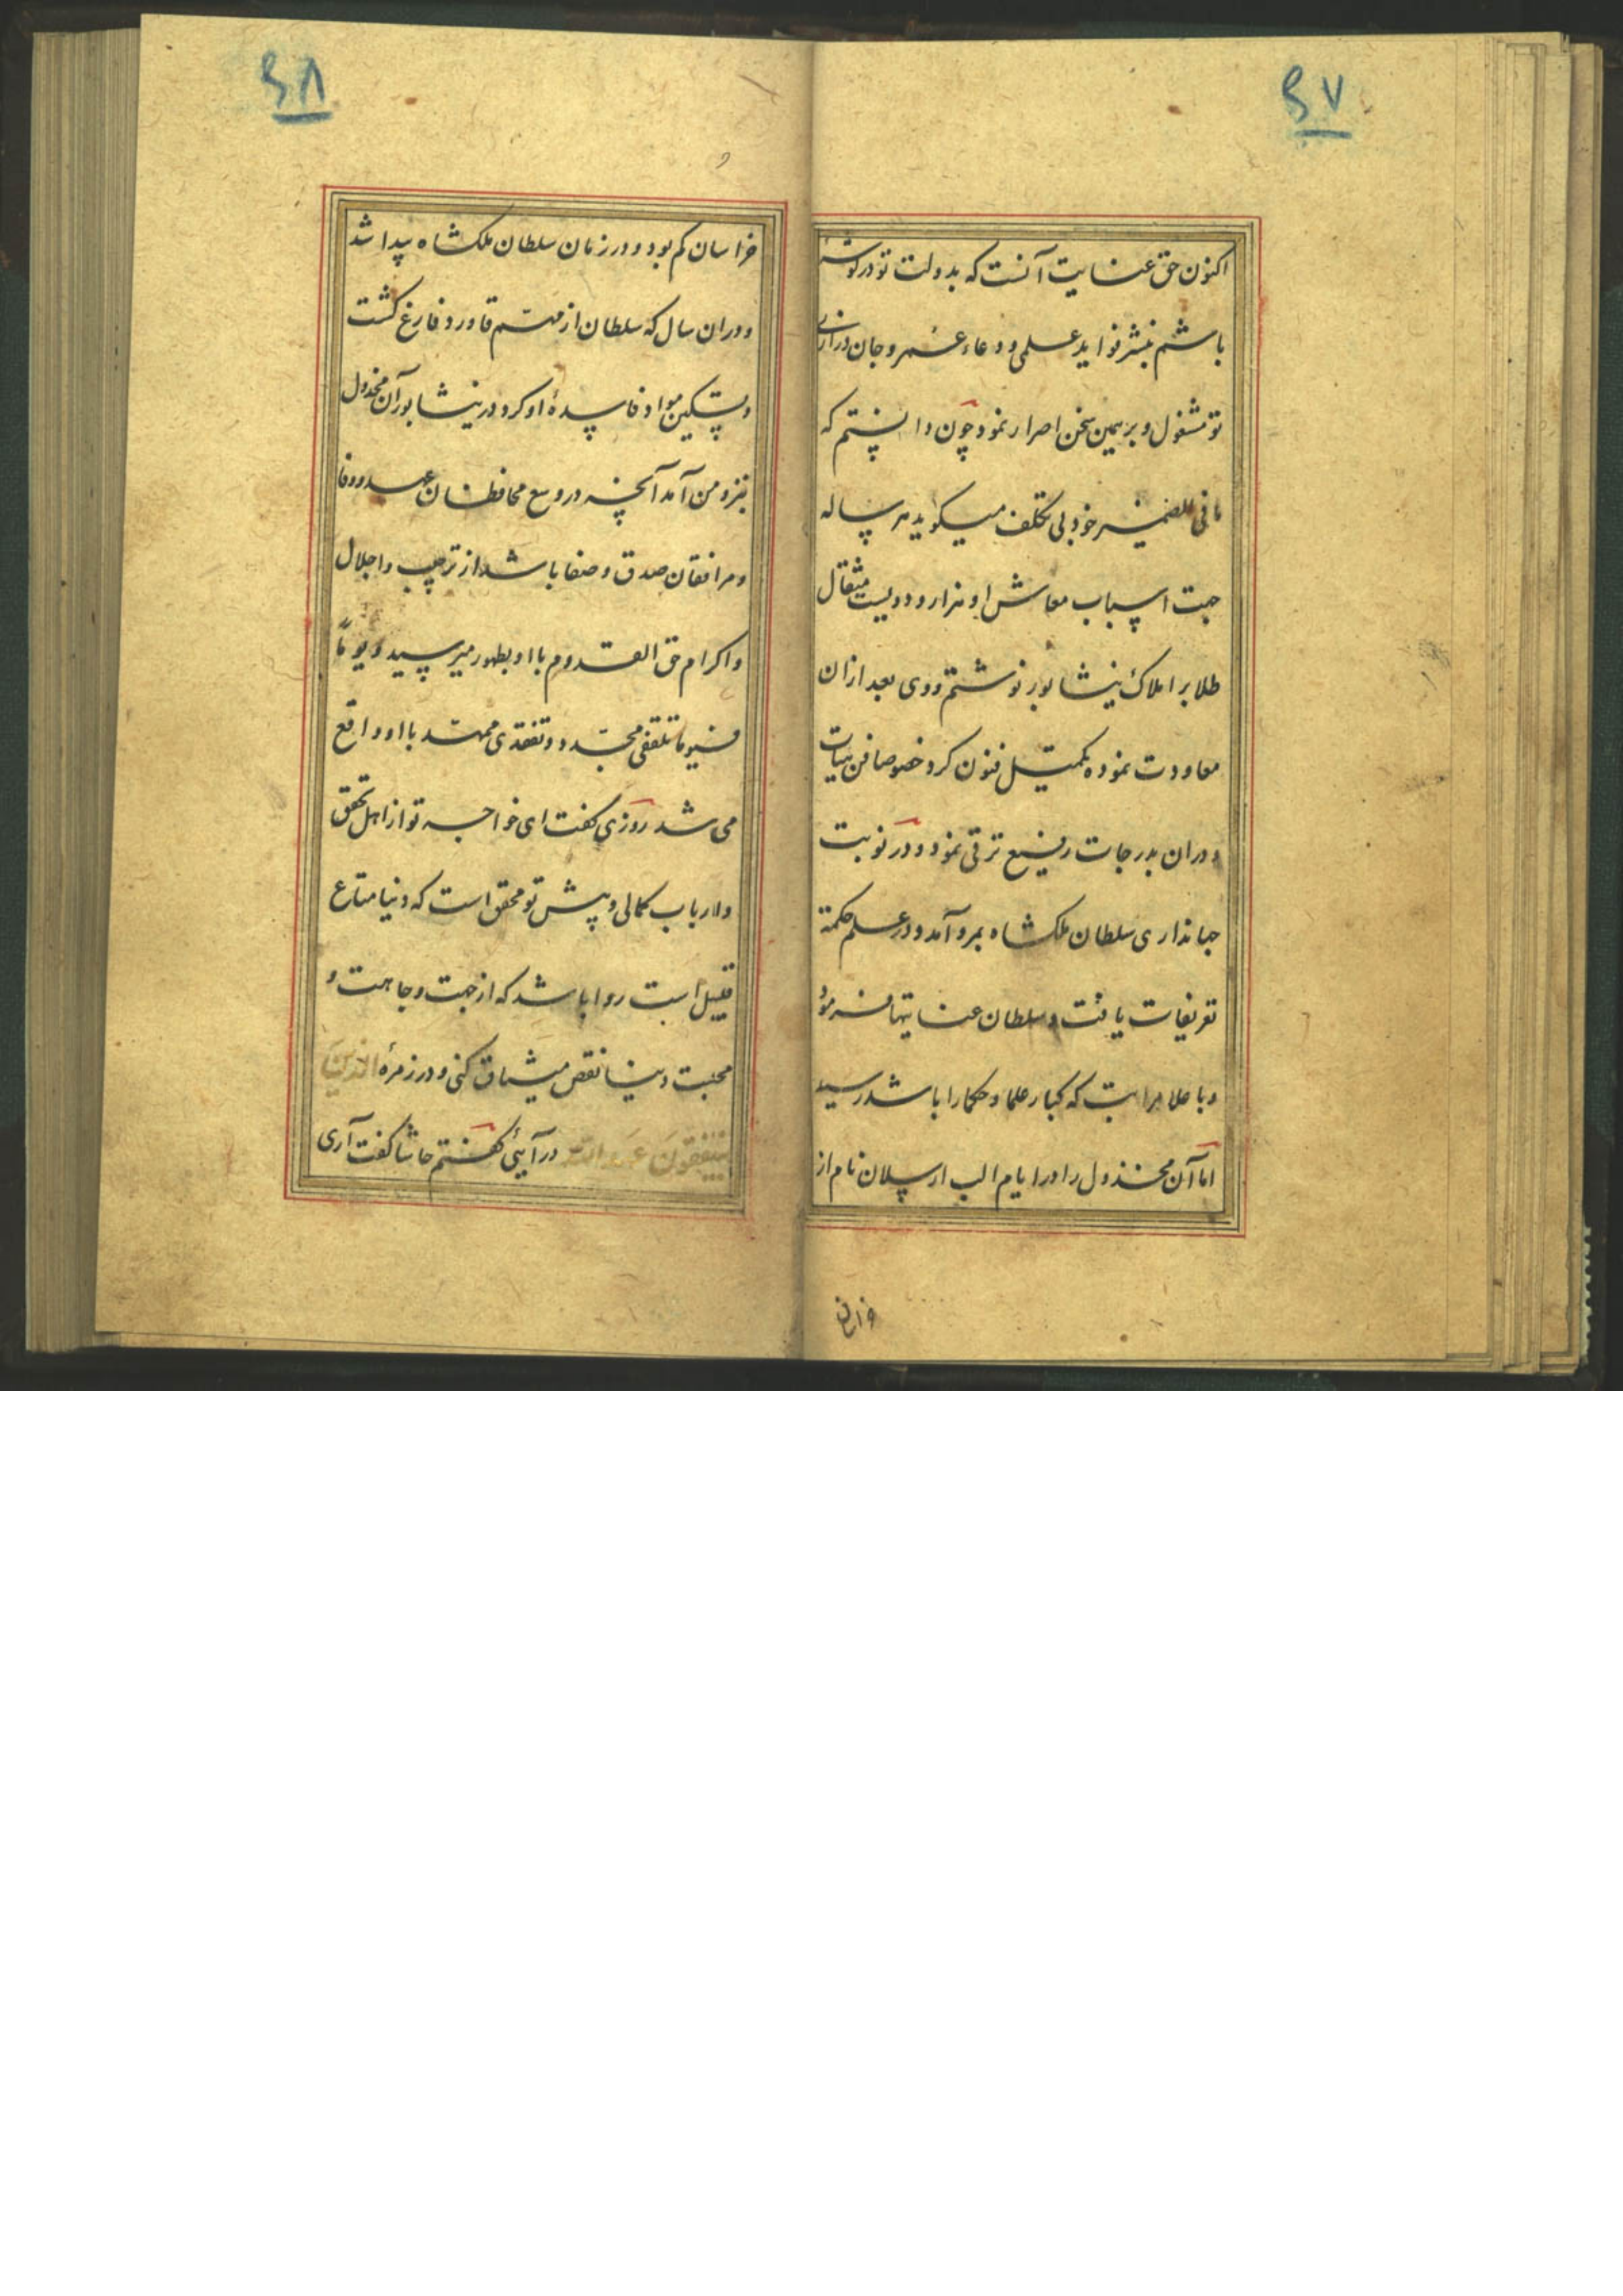 ۴۷
اکنون حق عنایت آنست که بدولت تو در گوشهٔ
باشم بنشر فواید علمی و دعاء عمر و جان درازی
تو مشغول و بر همین سخن اصرار نمود چون دانستم که
ما فی الضمیر خود بی تکلف میکوید هر ساله
جهت اسباب معاش او هزار و دویست مثقال
طلا بر املاک نیشابور نوشتم و وی بعد ازان
معاودت نموده تکمیل فنون کرد خصوصا فن هیات
و دران بدرجات رفیع ترقی نمود و در نوبت
جهانداری سلطان ملکشاه بمرو آمد و در علم حکمة
تعریفات یافت و سلطان عنایتها فرمود
و با علا مراتب که کبار علما و حکما را باشد رسید
اما آن مخذول را در ایام الب ارسلان نام از
خراسان
۴۸
خراسان کم بود و در زمان سلطان ملکشاه پیدا شد
و دران سال که سلطان از مهم قاورد فارغ کشت
و تسکین مواد فاسدهٔ او کرد در نیشابور آن مخذول
بنزد من آمد آنچه در وسع محافظان عهد و وفا
و مرافقان صدق و صفا باشد از ترحیب و اجلال
و اکرام حق القدوم با او بظهور میرسید و یوماً
فیوما تلقفی مجدد و تفقدی ممهد با او واقع
می شد روزی کفت ای خواجه تو از اهل تحقق
و ارباب کمالی و پیش تو محقق است که دنیا متاع
قلیل است روا باشد که از جهت وجاهت و
محبت دنیا نقص میثاق کنی و در زمرهٔ الذین
ینقضون عهد الله در آیی کفتم حاشا کفت آری